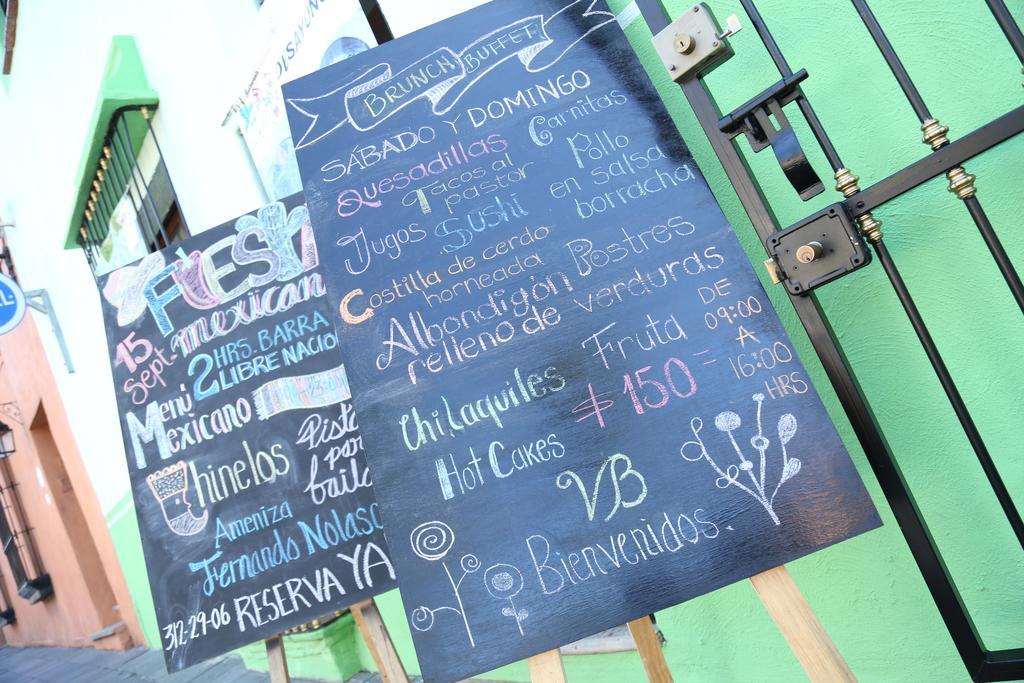 BRUNCH BUFFET
SÁBADO Y DOMINGO
Quesadillas
Carnitas
Tacos al
pastor
Pollo
en salsa
borracha
Jugos
Sushi
Costilla de cerdo
horneada
Postres
Albondigón
relleno de verduras
Fruta
DE
09:00
A
16:00
HRS
Chilaquiles
$150
Hot Cakes
VB
Bienvenidos.
15
Sept.
mexican
2 HRS. BARRA
LIBRE NACIO
Menú
Mexicano
Chinelos
Pista
par
baila
Ameniza
Fernando Nolasc
RESERVA YA
312-29-06